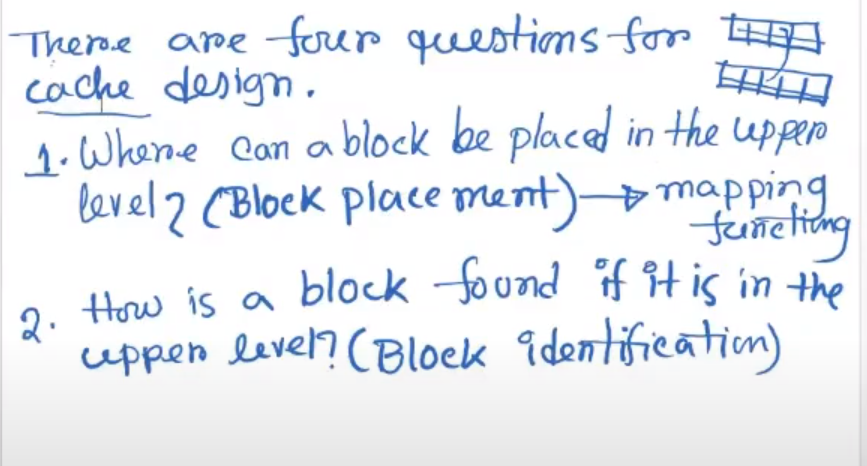 There are four questions for
cache design.
1. Where can a block be placed in the upper
level? (Block placement) → mapping
functiong
2. How is a block found if it is in the
upper level? (Block identification)